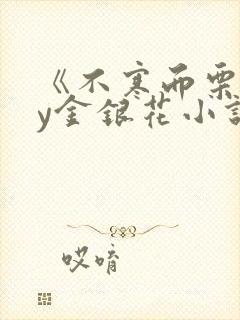 《不寒而栗
y金银花小说
哎唷